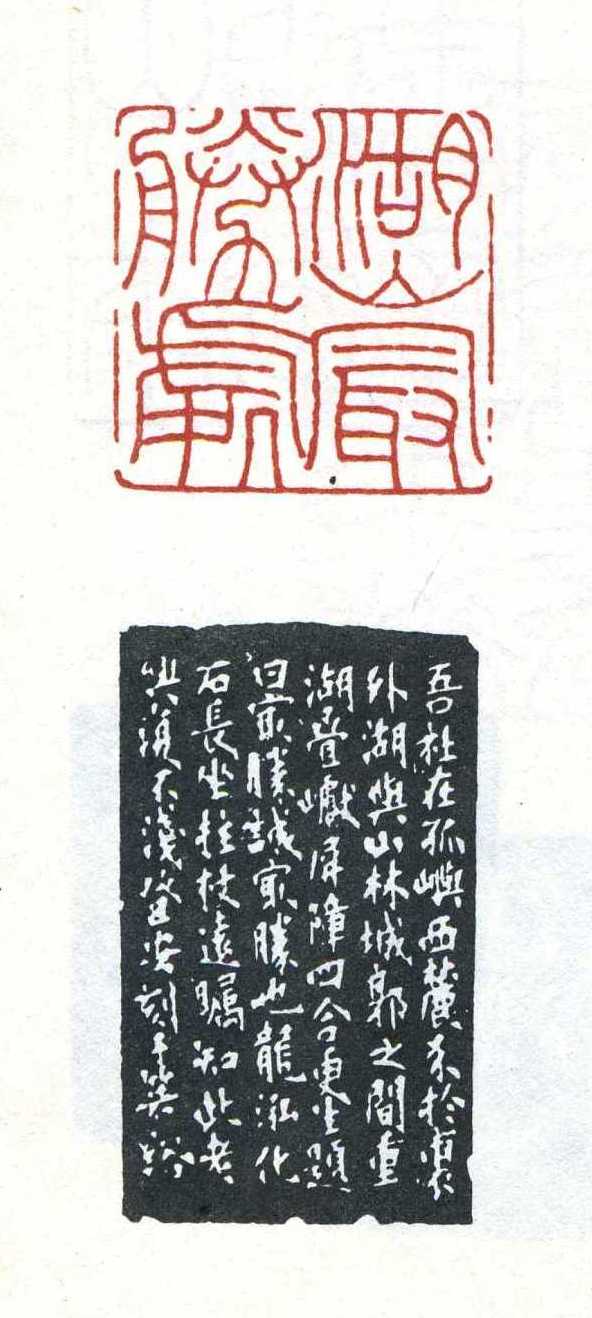 湖山最
勝處
吾社在孤嶼西麓介於裏
外湖與山林城郭之間重
湖疊巘屏障四合更生題
曰最勝誠最勝也龍泓化
石長坐拄杖遠矚知此老
興復不淺登安刻